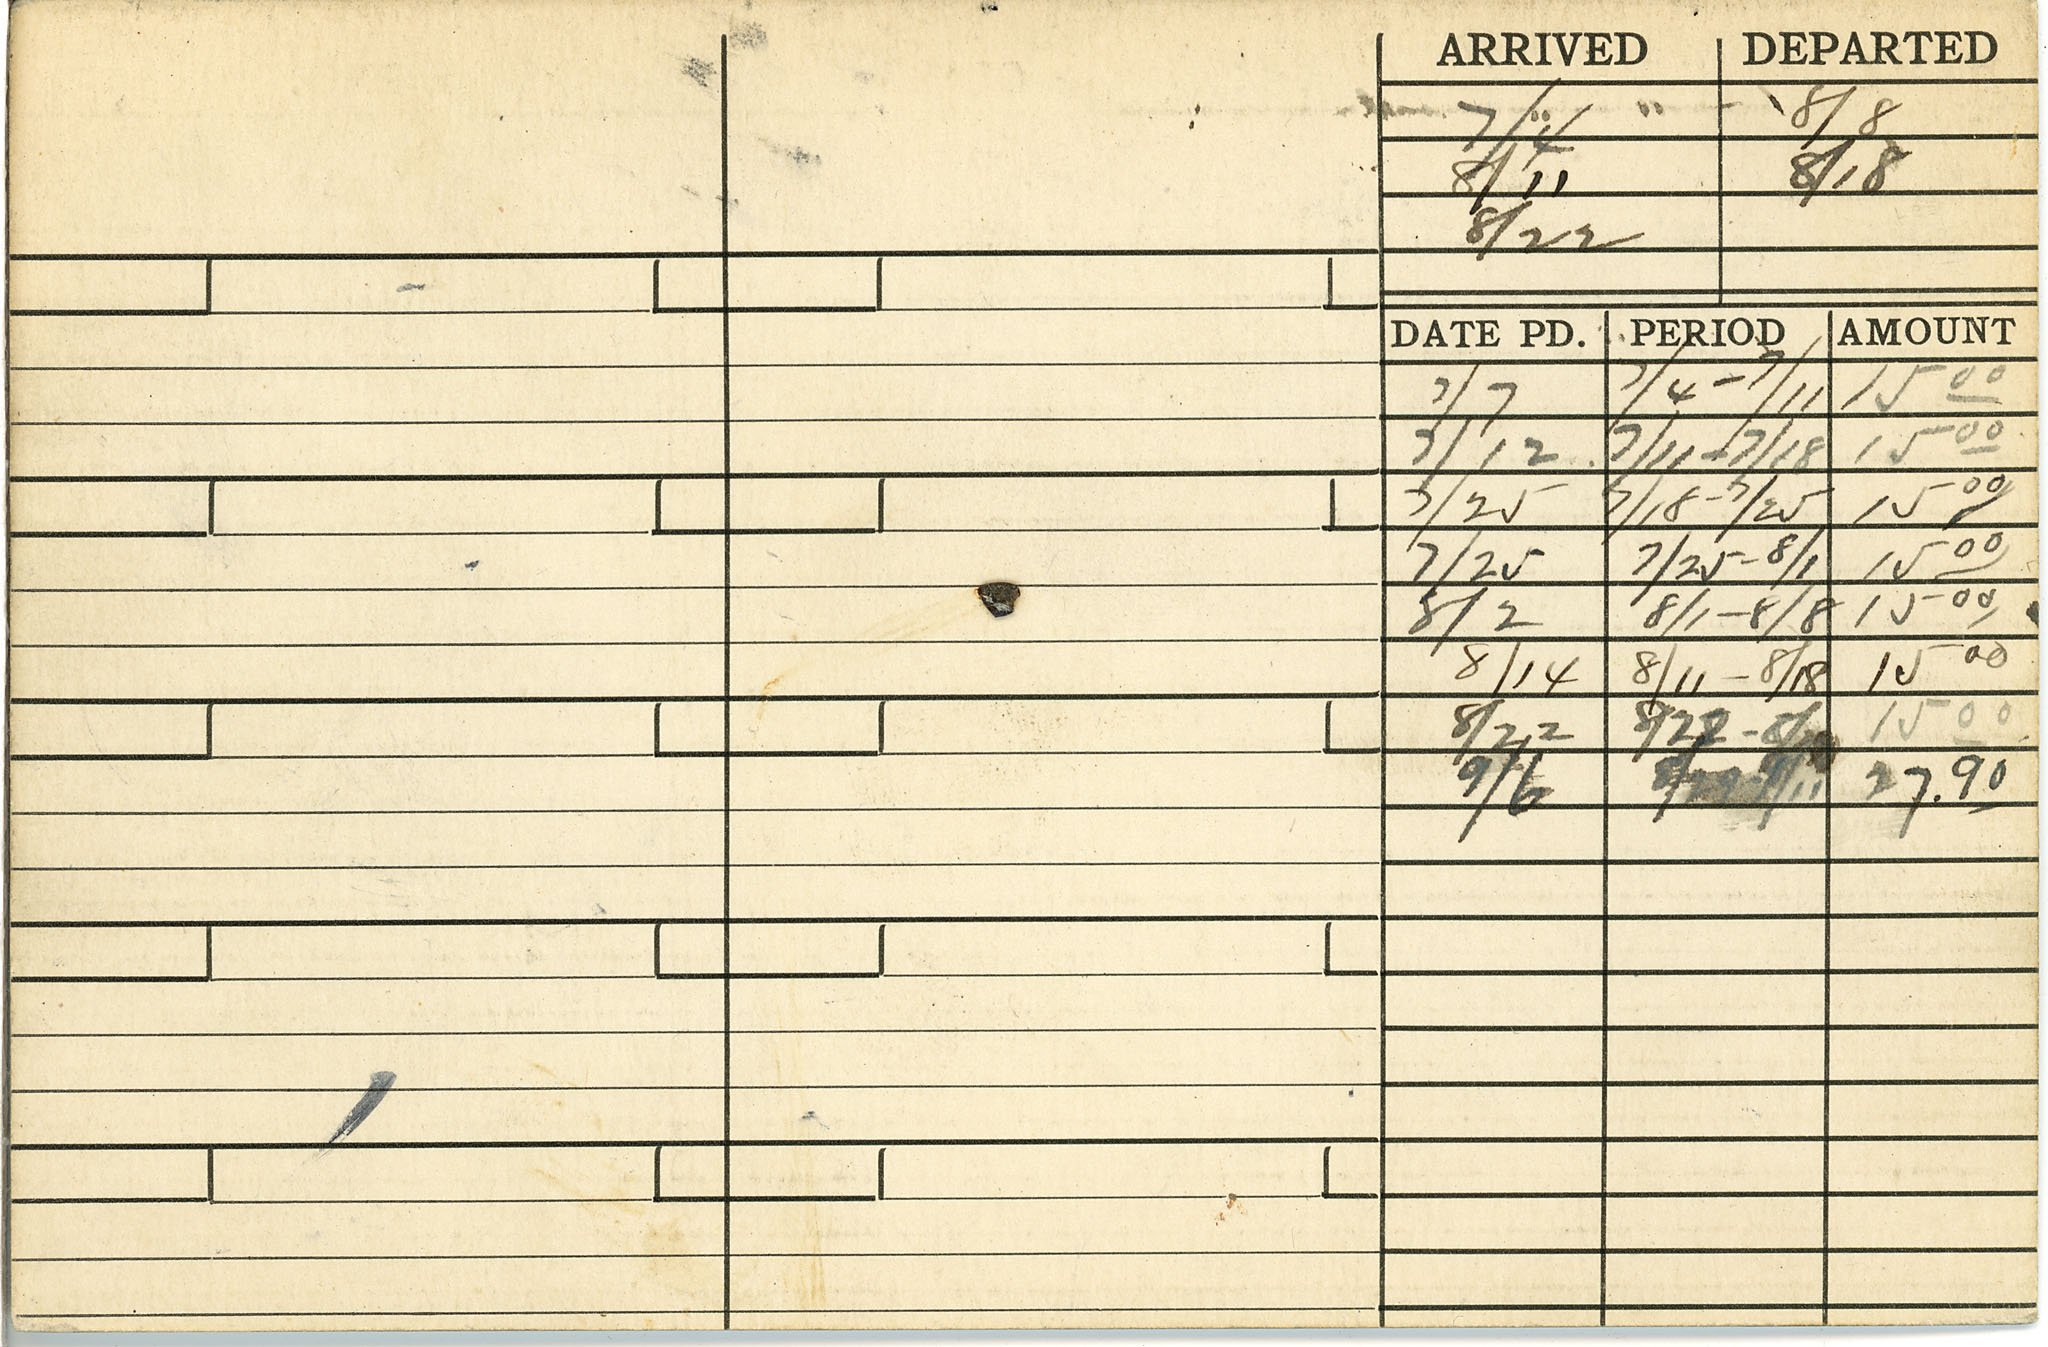 ARRIVED DEPARTED
7/4 8/8
8/11 8/18
8/22
DATE PD. PERIOD AMOUNT
7/7 7/4-7/11 15 00
7/12 7/11-7/18 15 00
7/25 7/18-7/25 15 00
7/25 7/25-8/1 15 00
8/2 8/1-8/8 15 00
8/14 8/11-8/18 15 00
8/22 8/22-8/ 15 00
9/6 8/29-9/11 27.90